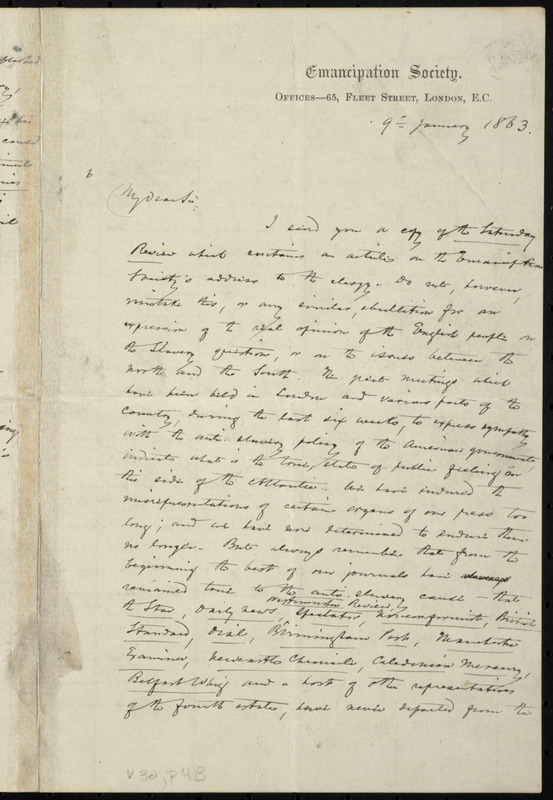 Emancipation Society.
Offices—65, Fleet Street, London, E.C.
9th January 1863.
My dear Sir,
I send you a copy of the Saturday
Review which contains an article on the Emancipation
Society's address to the clergy. Do not, however,
mistake this, or any similar ebullition for an
expression of the real opinion of the English people on
the Slavery question, or on the issues between the
North and the South. The great meetings which
have been held in London and various parts of the
country, during the last six weeks, to express sympathy
with the anti-slavery policy of the American government,
indicate what is the true state of public feeling on
this side of the Atlantic. We have endured the
misrepresentations of certain organs of our press too
long; and we have now determined to endure them
no longer. But always remember that from the
beginning the best of our journals have always
remained true to the anti-slavery cause - that
Westminster Review,
the Star, Daily News, Spectator, Nonconformist, British
Standard, Dial, Birmingham Post, Manchester
Examiner, Newcastle Chronicle, Caledonian Mercury,
Belfast Whig and a host of other representatives
of the fourth estate, have never departed from the
v.32, p4B